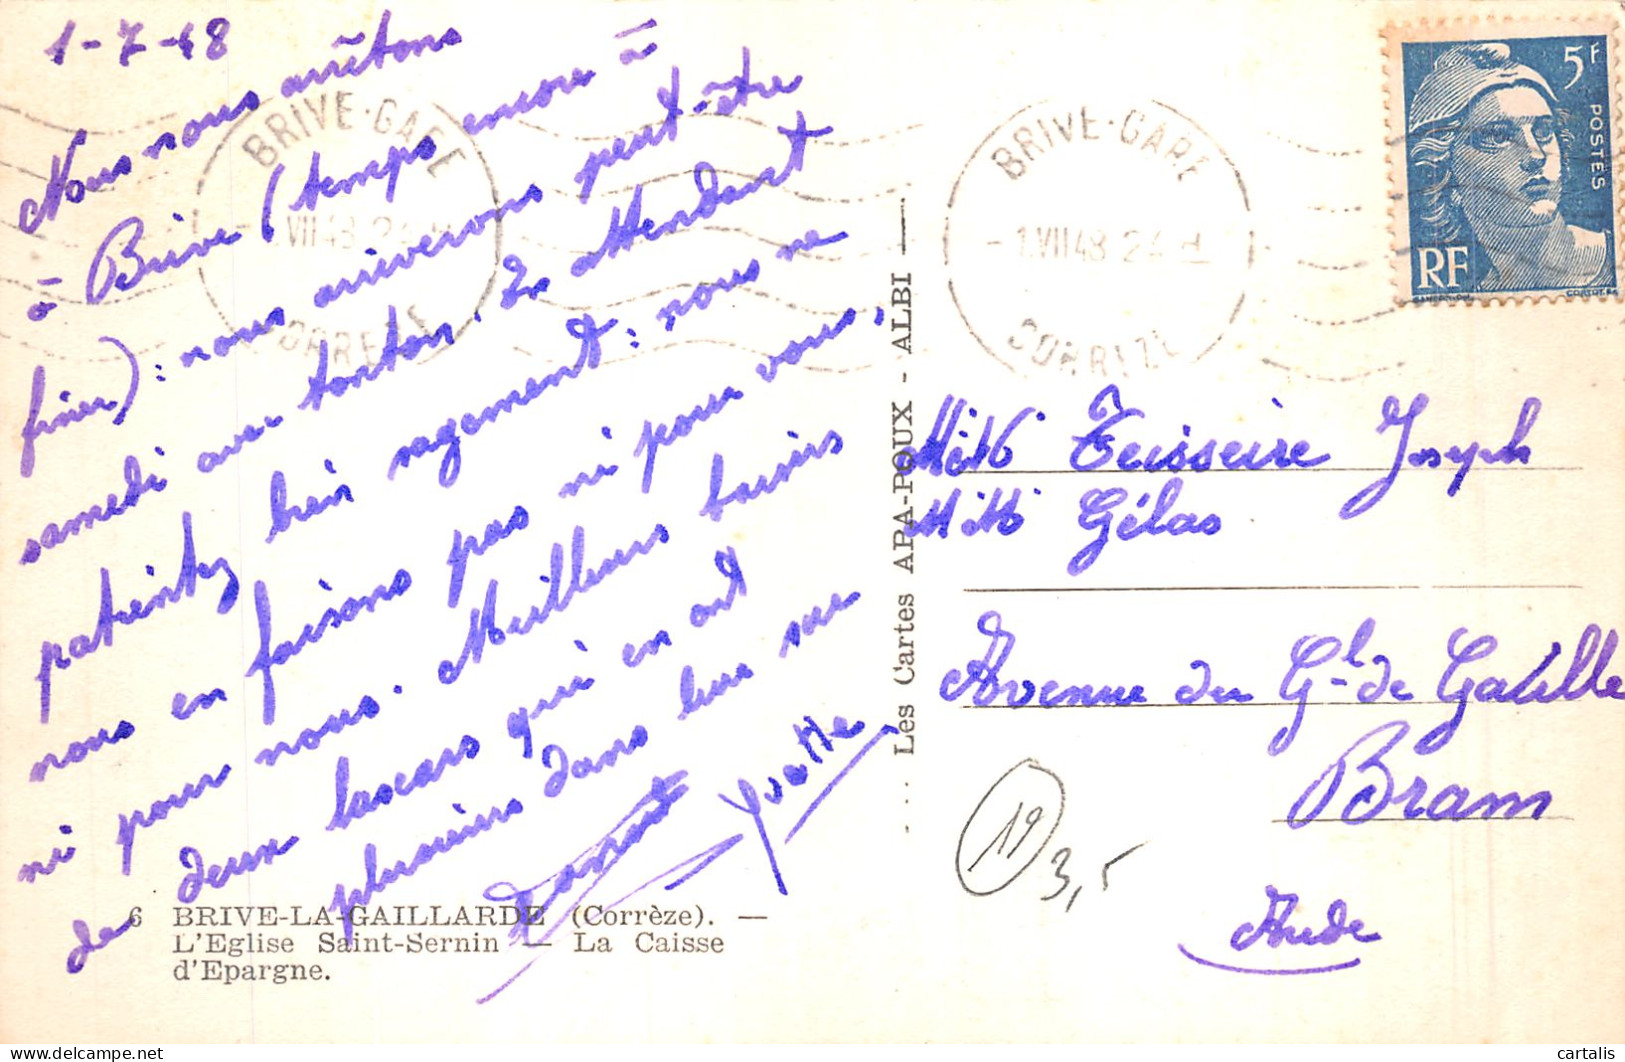 1-7-48
Nous nous arrêtons
à Brive (temps encore à
finir) : nous arriverons peut-être
samedi avec tonton. En attendant
patientez bien sagement : nous ne
nous en faisons pas ni pour vous,
ni pour nous. Meilleurs baisers
de deux lascars qui en ont
plusieurs dans leur sac
Yvette
BRIVE-GARE
-1.VII 48 24
CORREZE
BRIVE-GARE
VII 48 24
CORREZE
5F
POSTES
RF
... Les Cartes APA-POUX - ALBI —
Teisseire Joseph
Gélas
Avenue du Gl de
Bram
Aude
19
3,5
6 BRIVE-LA-GAILLARDE (Corrèze). —
L'Eglise Saint-Sernin — La Caisse
d'Epargne.
cartalis